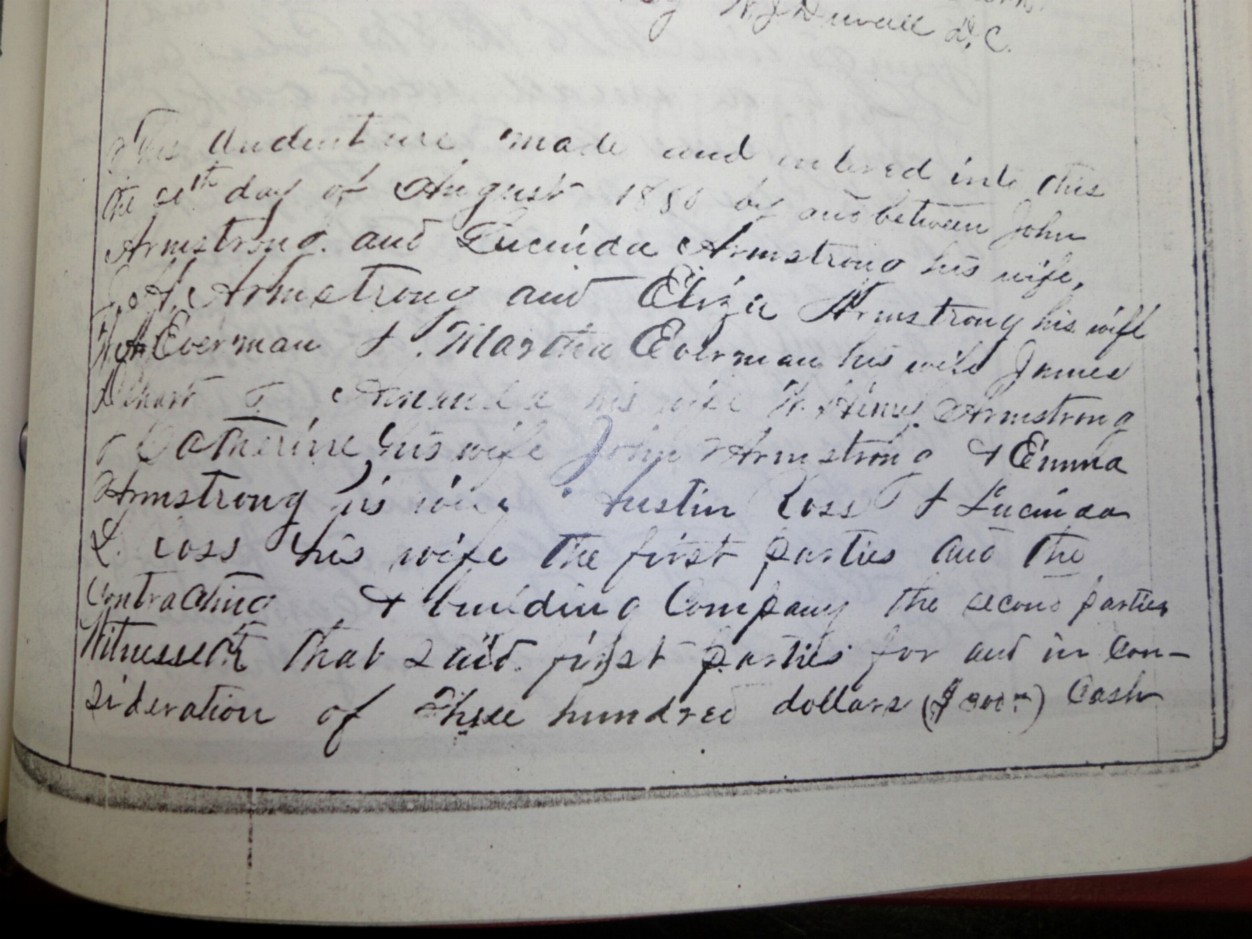 W.J. Duvall D.C.
This Indenture made and entered into this
the day of August 18 by and between John
Armstrong and Lucinda Armstrong his wife,
Armstrong and Eliza Armstrong his wife
Everman & Martha Everman his wife James
& Amanda his wife W. Henry Armstrong
& Catherine his wife John Armstrong & Emma
Armstrong his wife Austin Coss & Lucinda
L. Coss his wife the first parties and the
Contracting & building Company the second parties
Witnesseth that said first parties for and in Con-
sideration of Three hundred dollars ($300) Cash